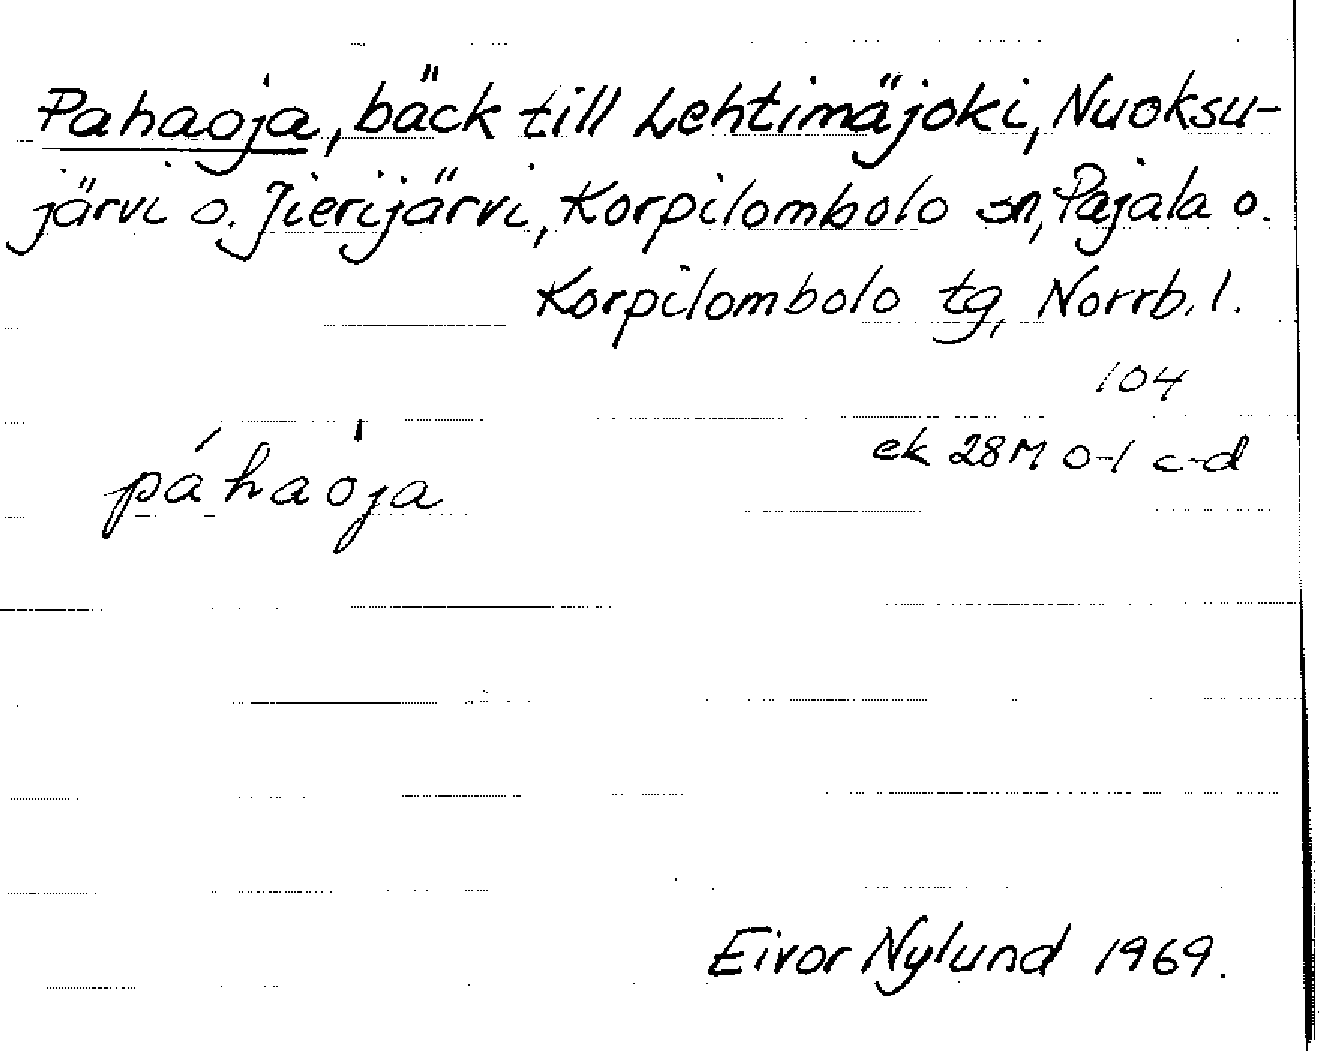 Pahaoja, bäck till Lehtimäjoki, Nuoksu-
järvi o. Jierijärvi, Korpilombolo sn, Pajala o.
Korpilombolo tg, Norrb. l.
104
ek 28M 0-1 c-d
páhaòja
Eivor Nylund 1969.